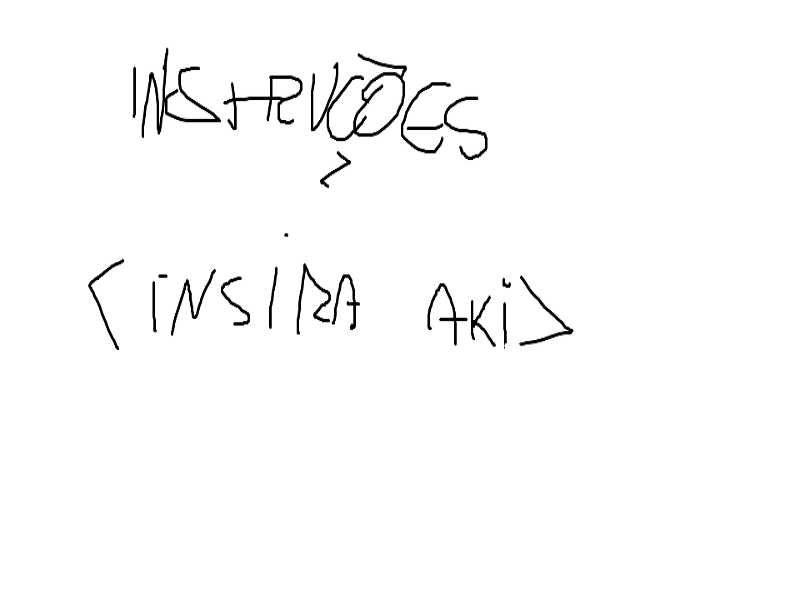 INSTRUÇÕES
<INSIRA AKI>